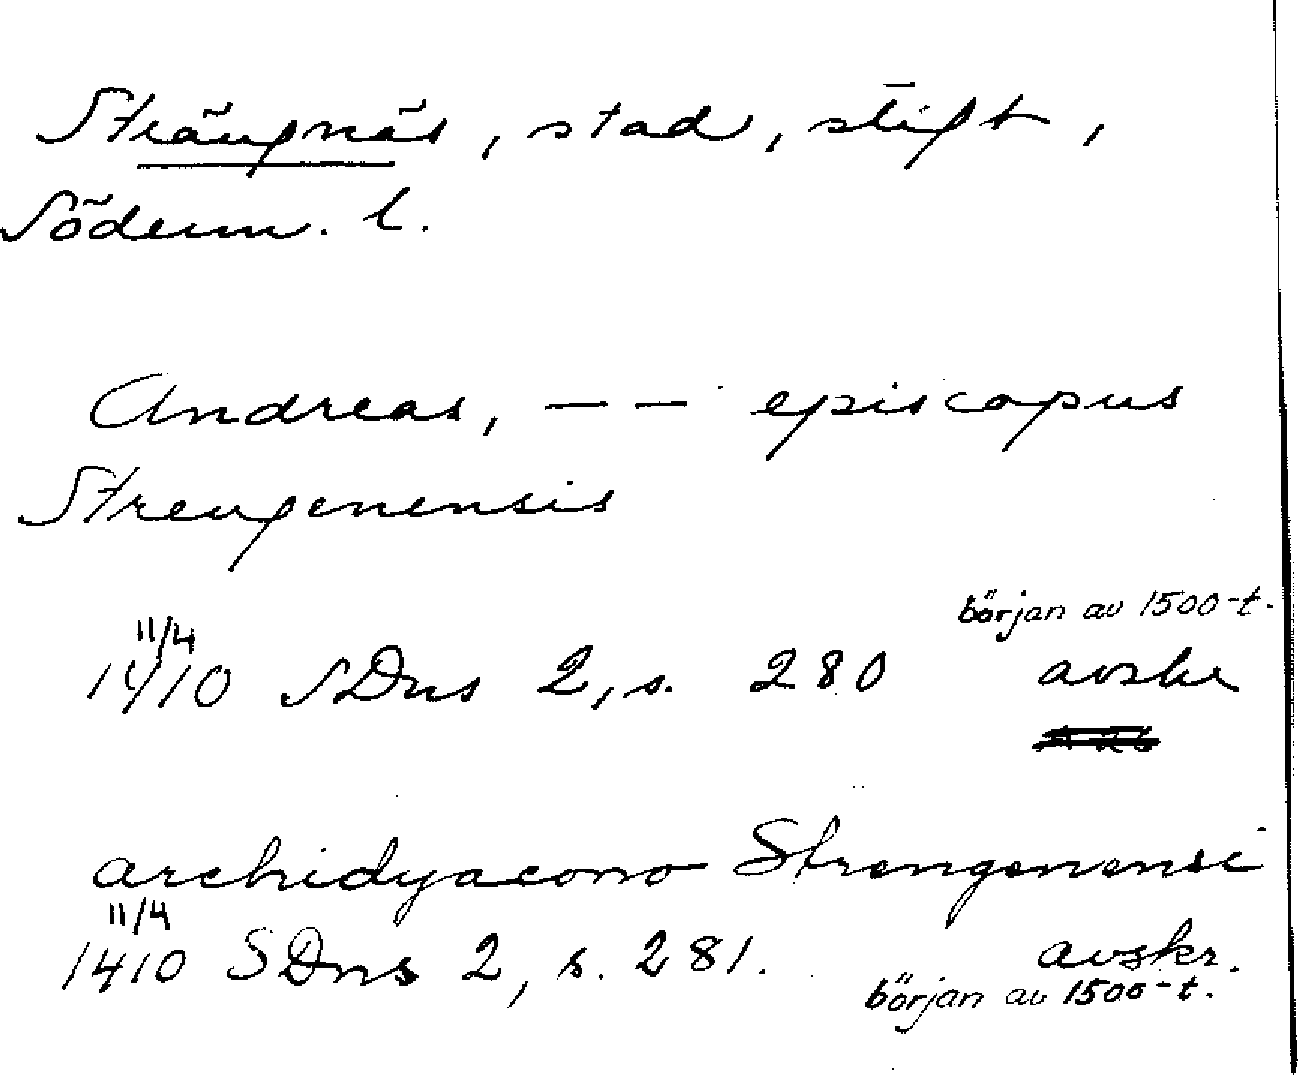 Strängnäs, stad, stift,
Söderm. l.
Andreas, — — episcopus
Strengenensis
början av 1500-t.
11/4
1410 SDns 2, s. 280 avskr
archidyacono Strengenensi
11/4
1410 SDns 2, s. 281. avskr.
början av 1500-t.